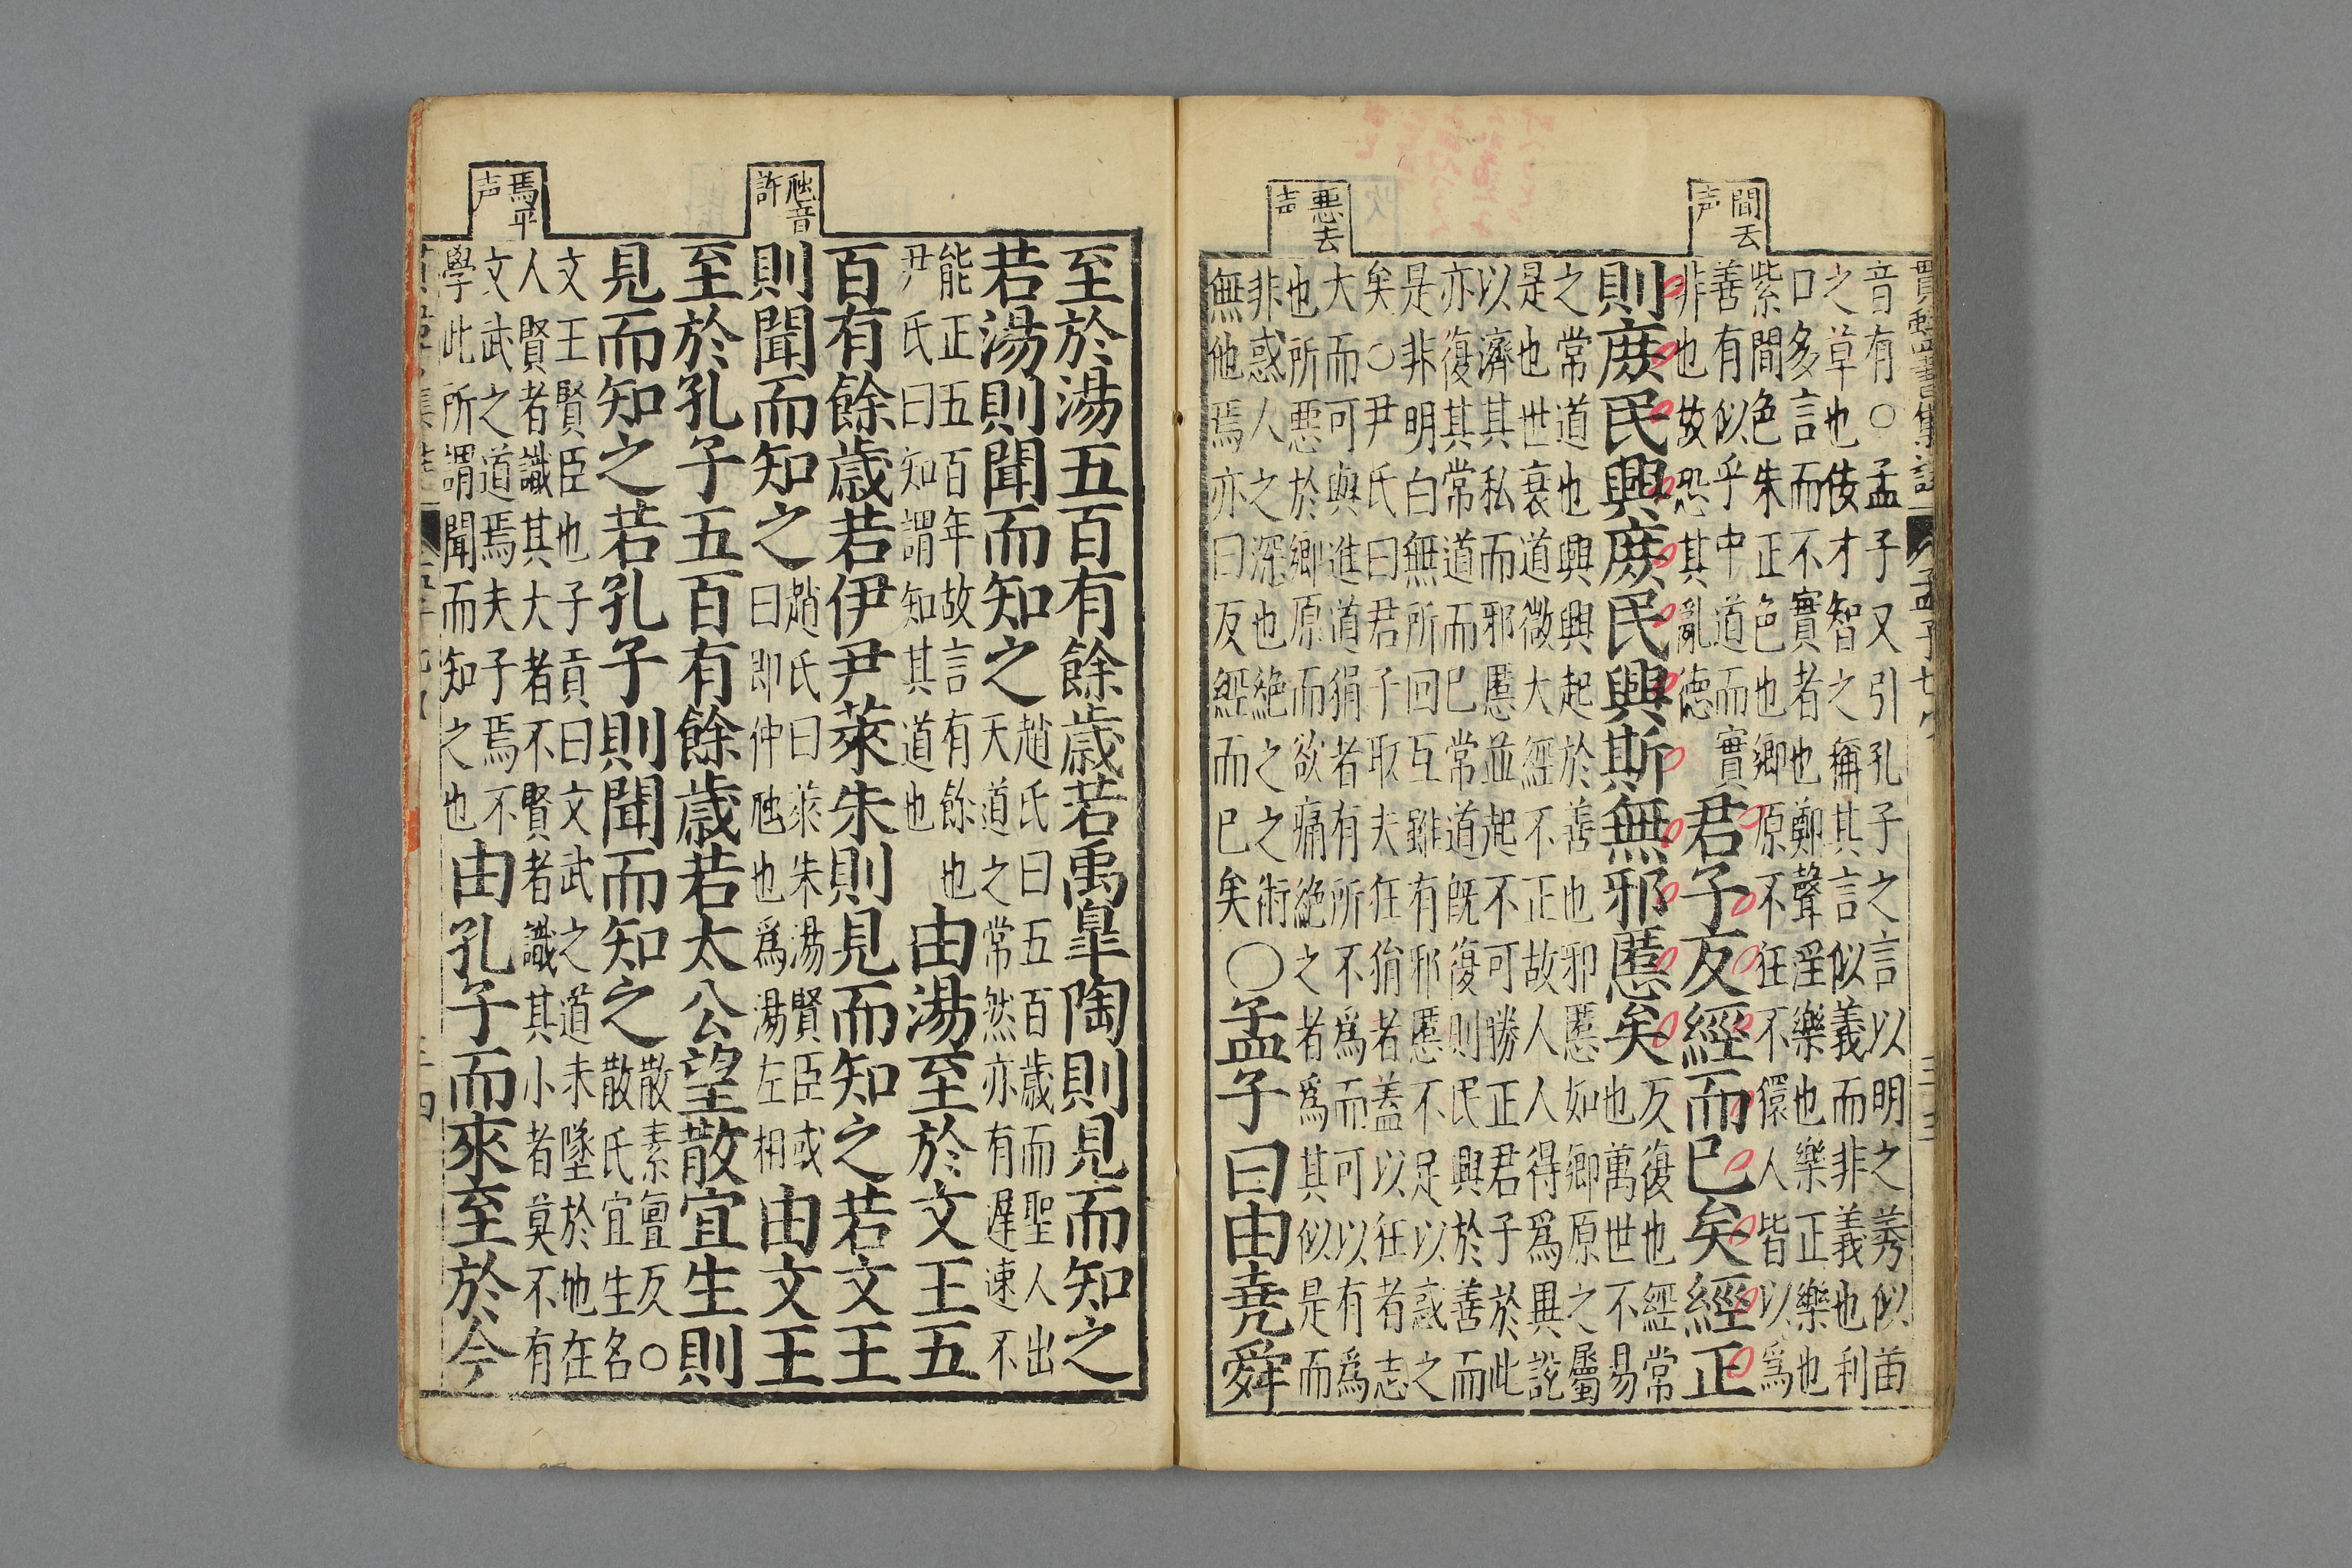 間去
声
惡去
声
音有○孟子又引孔子之言以明之莠似苗
之草也佞才智之稱其言似義而非義也利
口多言而不實者也鄭聲淫樂也樂正樂也
紫間色朱正色也鄉原不狂不獧人皆以爲
善有似乎中道而實
非也故恐其亂德
君子反經而已矣經正
則庶民興庶民興斯無邪慝矣
反復也經常
也萬世不易
之常道也興興起於善也邪慝如鄉原之屬
是也世衰道微大經不正故人人得爲異說
以濟其私而邪慝並起不可勝正君子於此
亦復其常道而已常道既復則民興於善而
是非明白無所回互雖有邪慝不足以惑之
矣○尹氏曰君子取夫狂狷者蓋以狂者志
大而可與進道狷者有所不爲而可以有爲
也所惡於鄉原而欲痛絶之者爲其似是而
非惑人之深也絶之之術
無他焉亦曰反經而已矣
○孟子曰由堯舜
虺音
許
焉平
声
至於湯五百有餘歲若禹皐陶則見而知之
若湯則聞而知之
趙氏曰五百歲而聖人出
天道之常然亦有遲速不
能正五百年故言有餘也
尹氏曰知謂知其道也
由湯至於文王五
百有餘歲若伊尹萊朱則見而知之若文王
則聞而知之
趙氏曰萊朱湯賢臣或
曰即仲虺也爲湯左相
由文王
至於孔子五百有餘歲若太公望散宜生則
見而知之若孔子則聞而知之
散素亶反○
散氏宜生名
文王賢臣也子貢曰文武之道未墜於地在
人賢者識其大者不賢者識其小者莫不有
文武之道焉夫子焉不
學此所謂聞而知之也
由孔子而來至於今